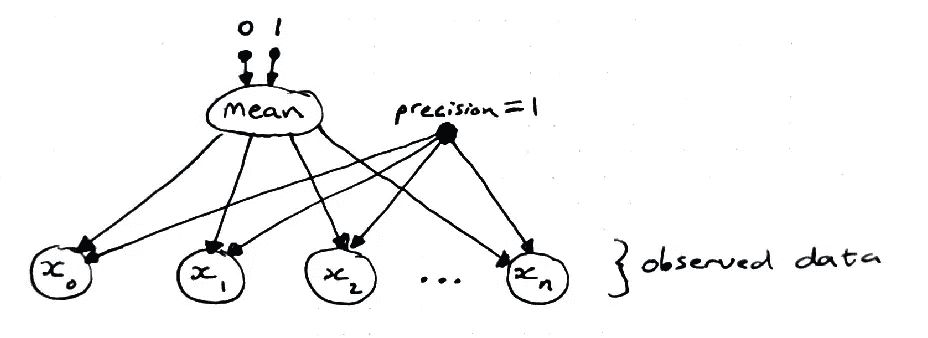 0 1
mean
precision = 1
x₀ x₁ x₂ ... xₙ } observed data